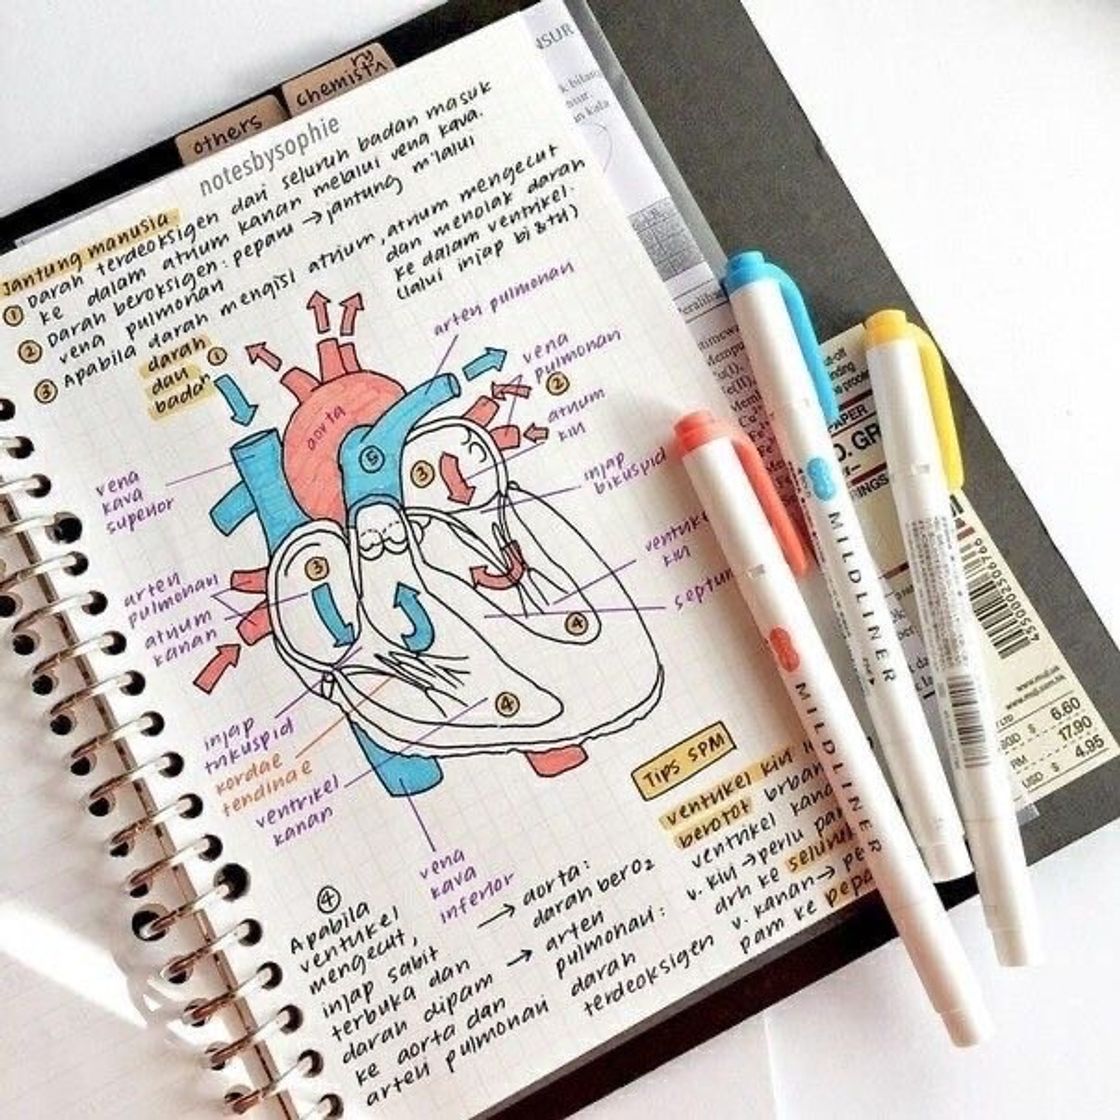 others
chemistry
notesbysophie
jantung manusia
① Darah terdeoksigen dari seluruh badan masuk
ke dalam atrium kanan melalui vena kava.
② Darah beroksigen: pepau → jantung m'lalui
vena pulmonari
③ Apabila darah mengisi atrium, atrium mengecut
dan menolak darah
ke dalam ventrikel.
(lalui injap bi & tri)
darah
dari
badan
①
arteri pulmonari
vena
pulmonari
②
atrium
kiri
injap
bikuspid
ventrikel
kiri
septum
aorta
⑤
③
③
④
④
vena
kava
superior
arteri
pulmonari
atrium
kanan
injap
trikuspid
kordae
tendinae
ventrikel
kanan
vena
kava
inferior
④
Apabila
ventrikel
mengecut,
injap sabit
terbuka dan
darah dipam
ke aorta dan
arteri pulmonari
→ aorta:
darah berO₂
→ arteri
pulmonari:
darah
terdeoksigen
Tips SPM
ventrikel kiri
berotot
ventrikel
v. kiri → perlu
drh ke
v. kanan →
pam ke
MILDLINER
MILDLINER
PAPER
4550002506766
6.60
17.90
RM
USD $ 4.95